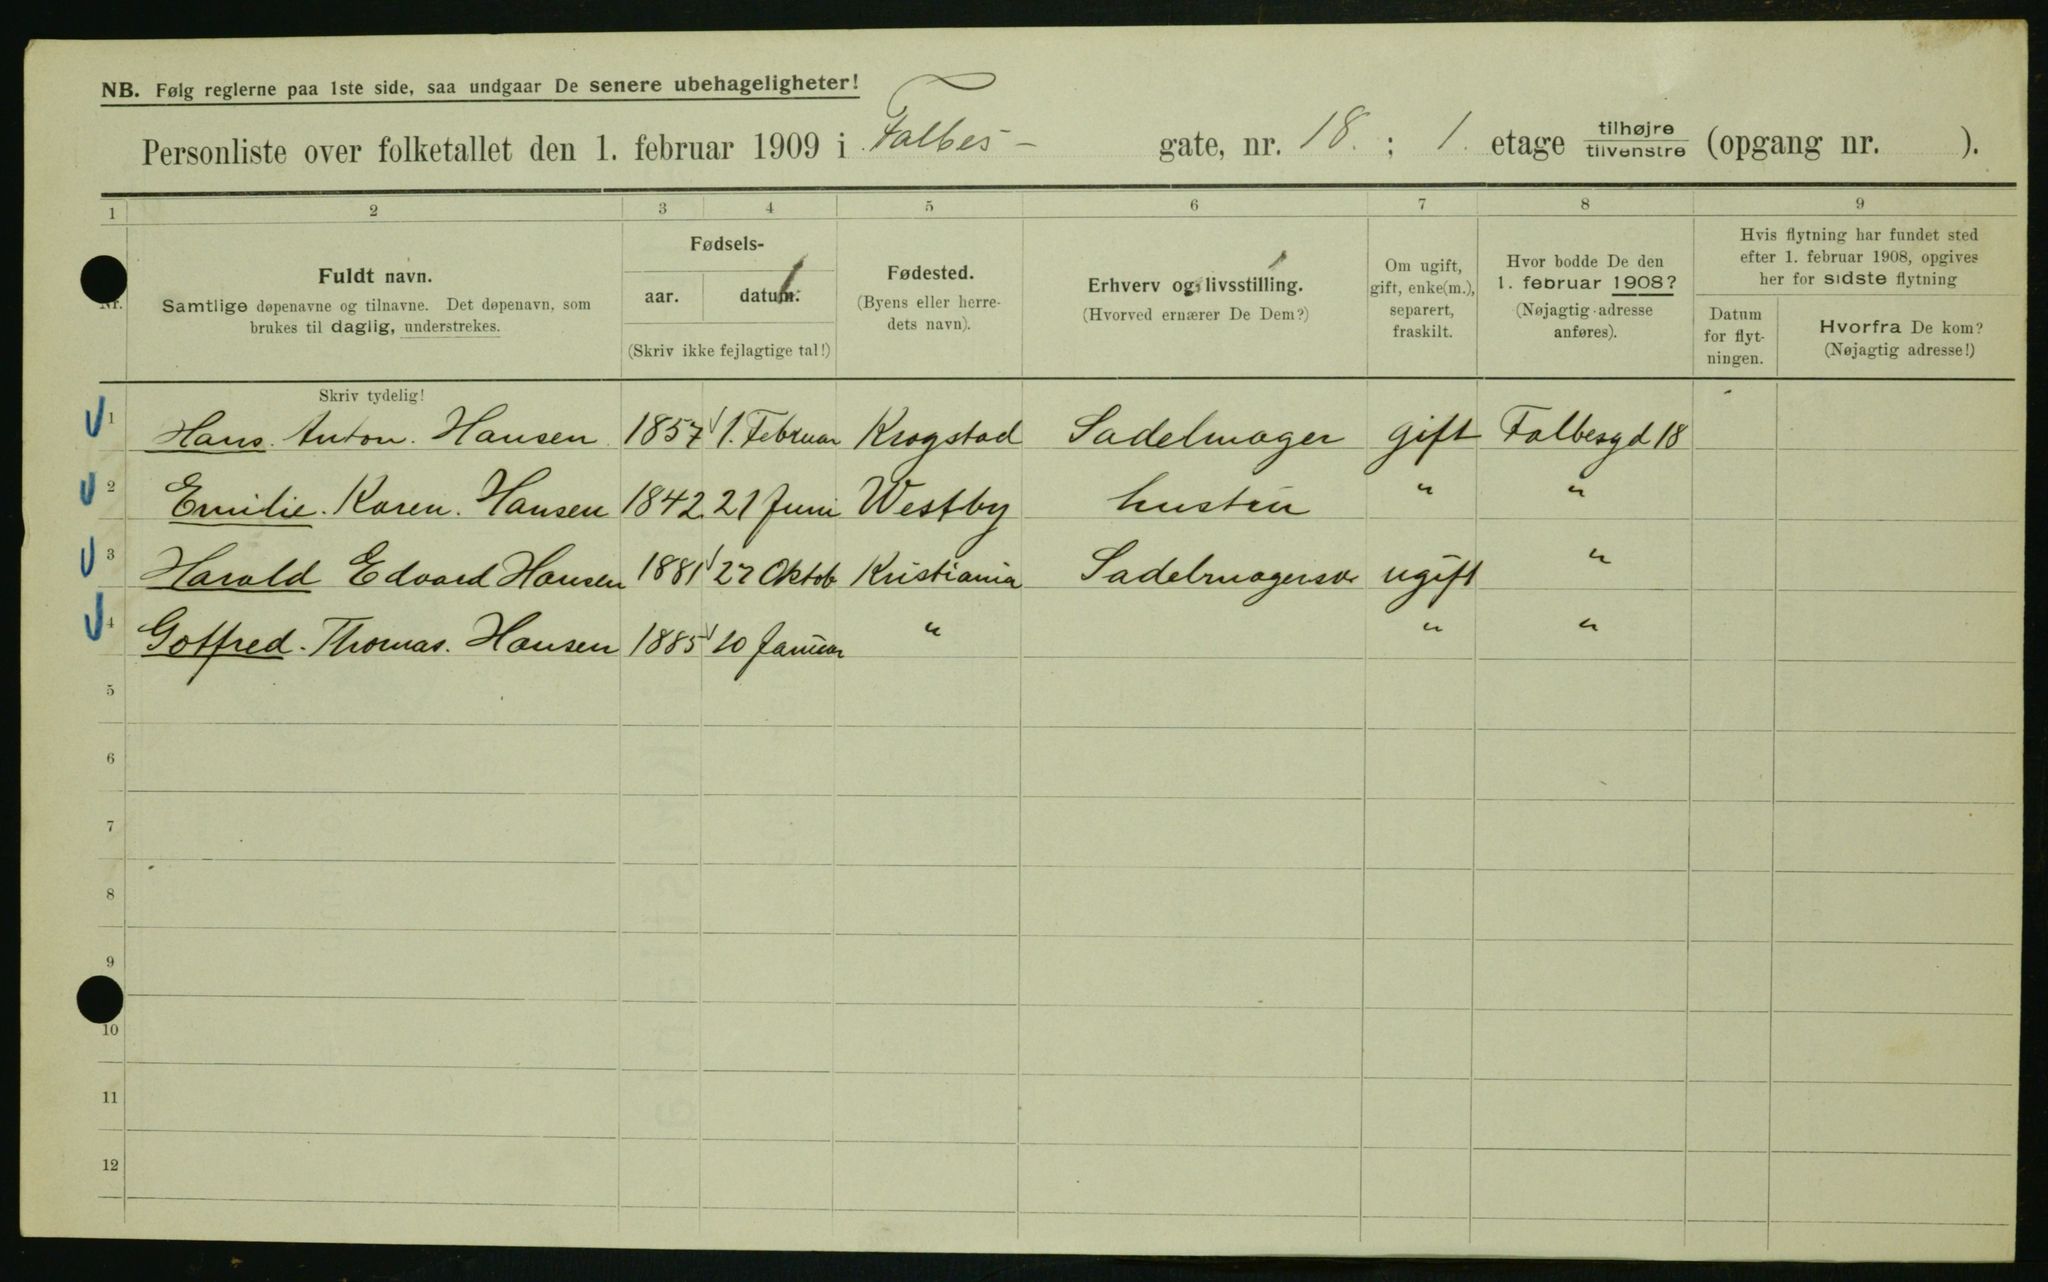 NB. Følg reglerne paa 1ste side, saa undgaar De senere ubehageligheter!
Personliste over folketallet den 1. februar 1909 i Falbes- gate, nr. 18. ; 1. etage tilhøjre tilvenstre (opgang nr. ).
1 2 3 4 5 6 7 8 9
Nr.
Fuldt navn.
Samtlige døpenavne og tilnavne. Det døpenavn, som
brukes til daglig, understrekes.
Fødsels-
aar. datum.
(Skriv ikke fejlagtige tal!)
Fødested.
(Byens eller herre-
dets navn).
Erhverv og livsstilling.
(Hvorved ernærer De Dem?)
Om ugift,
gift, enke(m.),
separert,
fraskilt.
Hvor bodde De den
1. februar 1908?
(Nøjagtig adresse
anføres).
Hvis flytning har fundet sted
efter 1. februar 1908, opgives
her for sidste flytning
Datum
for flyt-
ningen.
Hvorfra De kom?
(Nøjagtig adresse!)
Skriv tydelig!
1 Hans. Anton. Hansen 1857 1. Februar Krogstad Sadelmager gift Falbesgd 18
2 Emilie. Karen. Hansen 1842 21 Juni Westby hustru " "
3 Harald Edvard Hansen 1881 27 Oktob Kristiania Sadelmagersv. ugift "
4 Gotfred. Thomas. Hansen 1885 10 Januar " " "
5
6
7
8
9
10
11
12